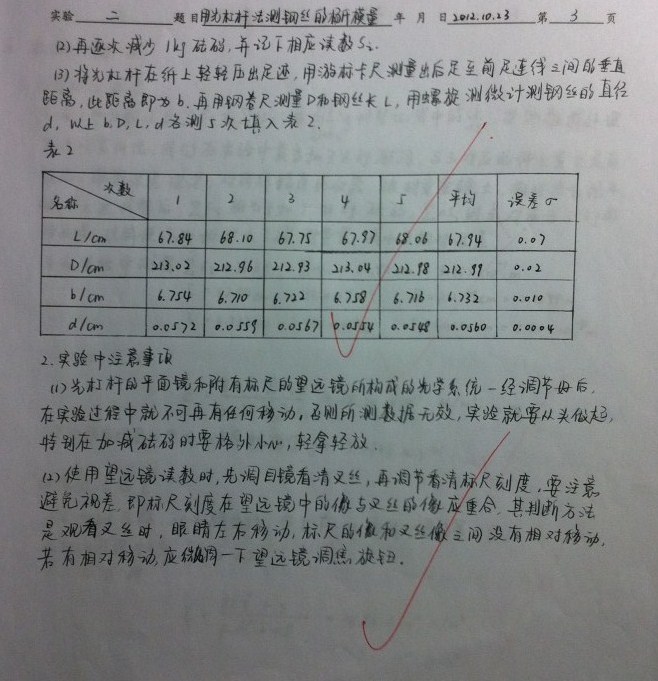 实验 二 题目用光杠杆法测钢丝的杨氏模量 年 月 日2012.10.23 第 3 页
(2)再逐次减少1kg砝码,并记下相应读数S₂.
(3)将光杠杆在纸上轻轻压出足迹,用游标卡尺测量出后足至前足连线之间的垂直
距离,此距离即为b.再用钢卷尺测量D和钢丝长L,用螺旋测微计测钢丝的直径
d,以上b.D,L,d各测5次填入表2.
表2
名称 次数 1 2 3 4 5 平均 误差σ
L/cm 67.84 68.10 67.75 67.97 68.06 67.94 0.07
D/cm 213.02 212.96 212.93 213.04 212.98 212.99 0.02
b/cm 6.754 6.710 6.722 6.758 6.716 6.732 0.010
d/cm 0.0572 0.0559 0.0567 0.0554 0.0548 0.0560 0.0004
2.实验中注意事项
(1)光杠杆的平面镜和附有标尺的望远镜所构成的光学系统一经调节好后,
在实验过程中就不可再有任何移动,否则所测数据无效,实验就要从头做起,
特别在加减砝码时要格外小心,轻拿轻放.
(2)使用望远镜读数时,先调目镜看清叉丝,再调节看清标尺刻度,要注意
避免视差.即标尺刻度在望远镜中的像与叉丝的像应重合.其判断方法
是观看叉丝时,眼睛左右移动,标尺的像和叉丝像之间没有相对移动,
若有相对移动,应微调一下望远镜调焦旋钮.